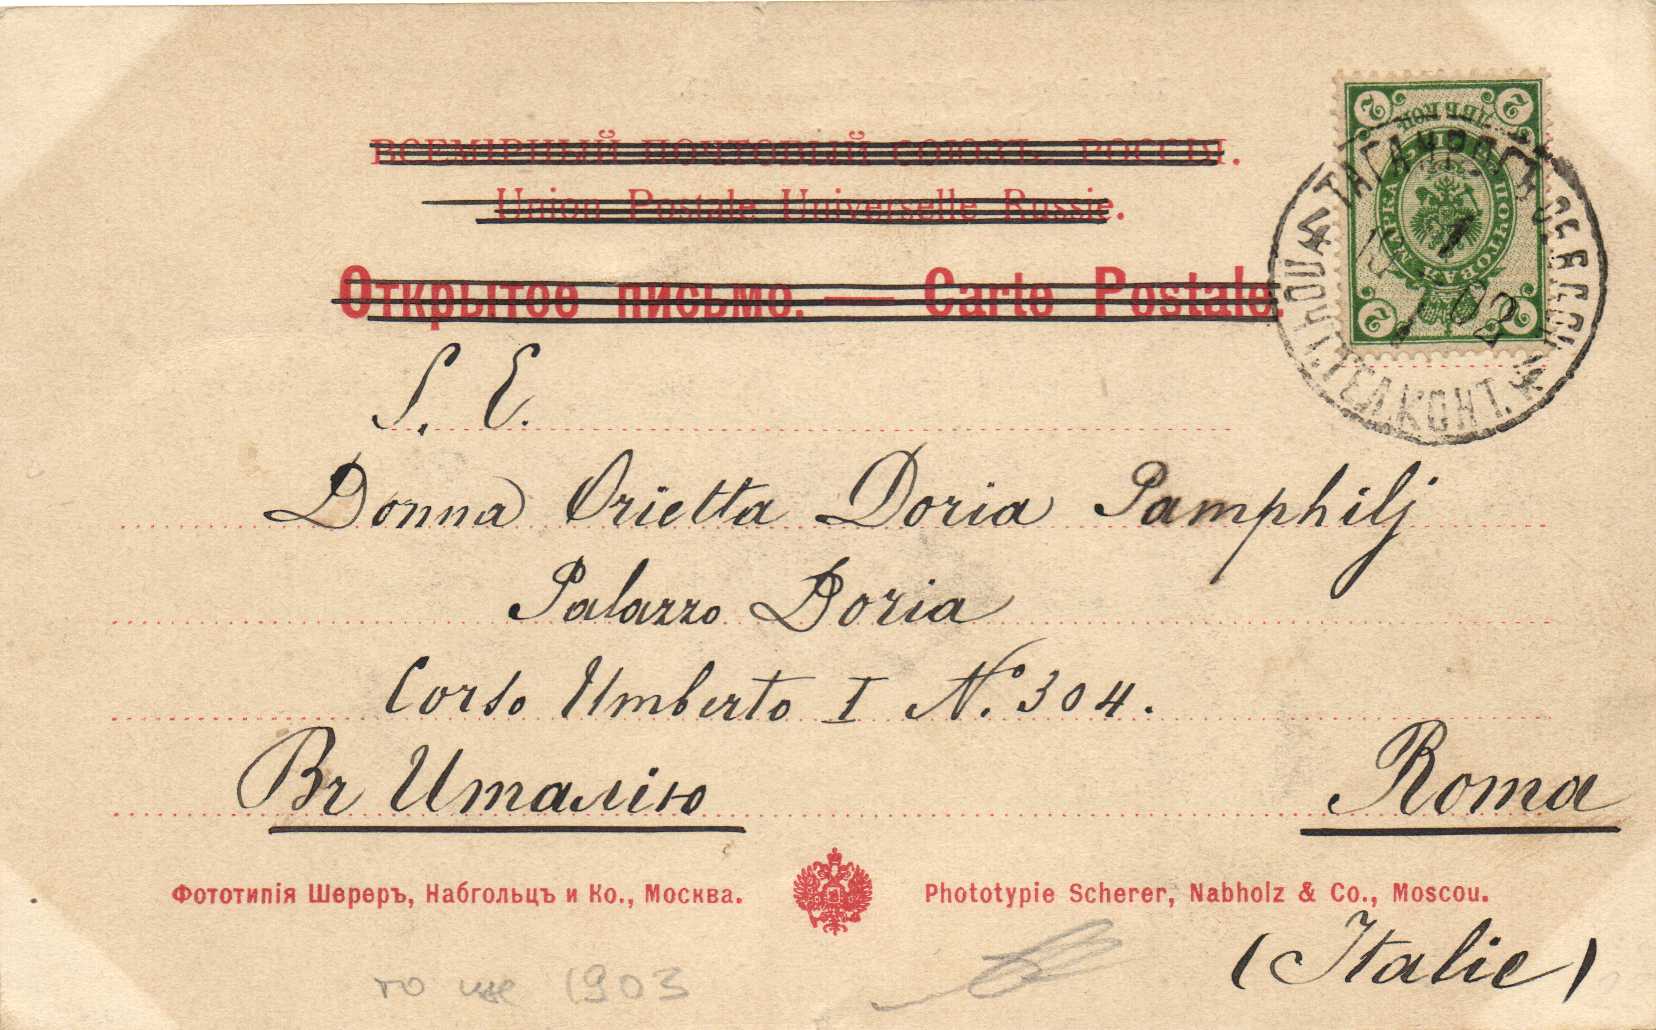 ВСЕМІРНЫЙ ПОЧТОВЫЙ СОЮЗЪ. РОССІЯ.
Union Postale Universelle Russie.
Открытое письмо. — Carte Postale.
S. E.
Donna Orietta Doria Pamphilj
Palazzo Doria
Corso Umberto I N. 304.
Въ Италію
Roma
Фототипія Шереръ, Набгольцъ и Ко., Москва.
Phototypie Scherer, Nabholz & Co., Moscou.
(Italie)
то же 1903
2 2
ДВѢ КОП.
ПОЧТОВАЯ МАРКА
2 2
ПОЧТ. ТЕЛ. КОНТ.